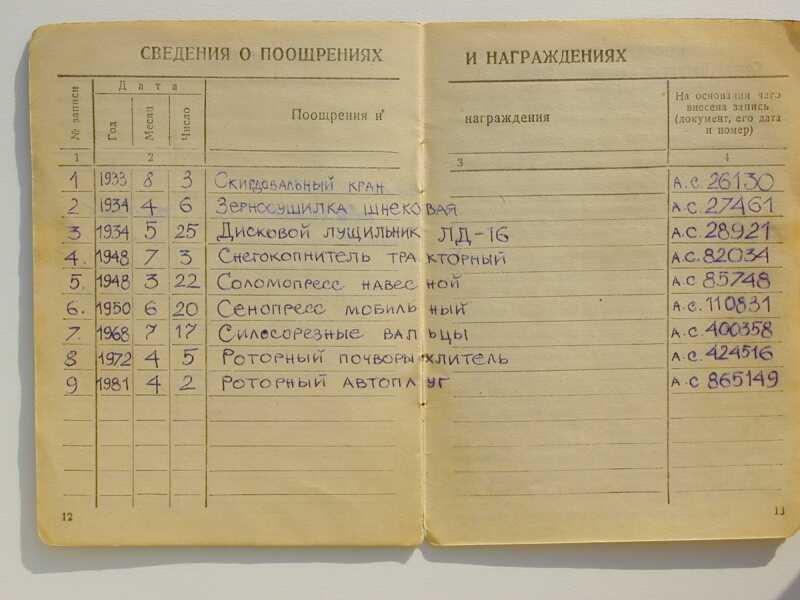 СВЕДЕНИЯ О ПООЩРЕНИЯХ И НАГРАЖДЕНИЯХ
№ записи
Дата
Год
Месяц
Число
Поощрения и награждения
На основании чего
внесена запись
(документ, его дата
и номер)
1 2 3 4
1 1933 8 3 Скирдовальный кран А.С. 26130
2 1934 4 6 Зерносушилка шнековая А.С. 27461
3 1934 5 25 Дисковой лущильник ЛД-16 А.С. 28921
4. 1948 7 3 Снегокопнитель тракторный А.С. 82034
5. 1948 3 22 Соломопресс навесной А.С 85748
6. 1950 6 20 Сенопресс мобильный А.С. 110831
7. 1968 7 17 Силосорезные вальцы А.С. 400358
8 1972 4 5 Роторный почворыхлитель А.С. 424516
9 1981 4 2 Роторный автоплуг А.С 865149
12
13